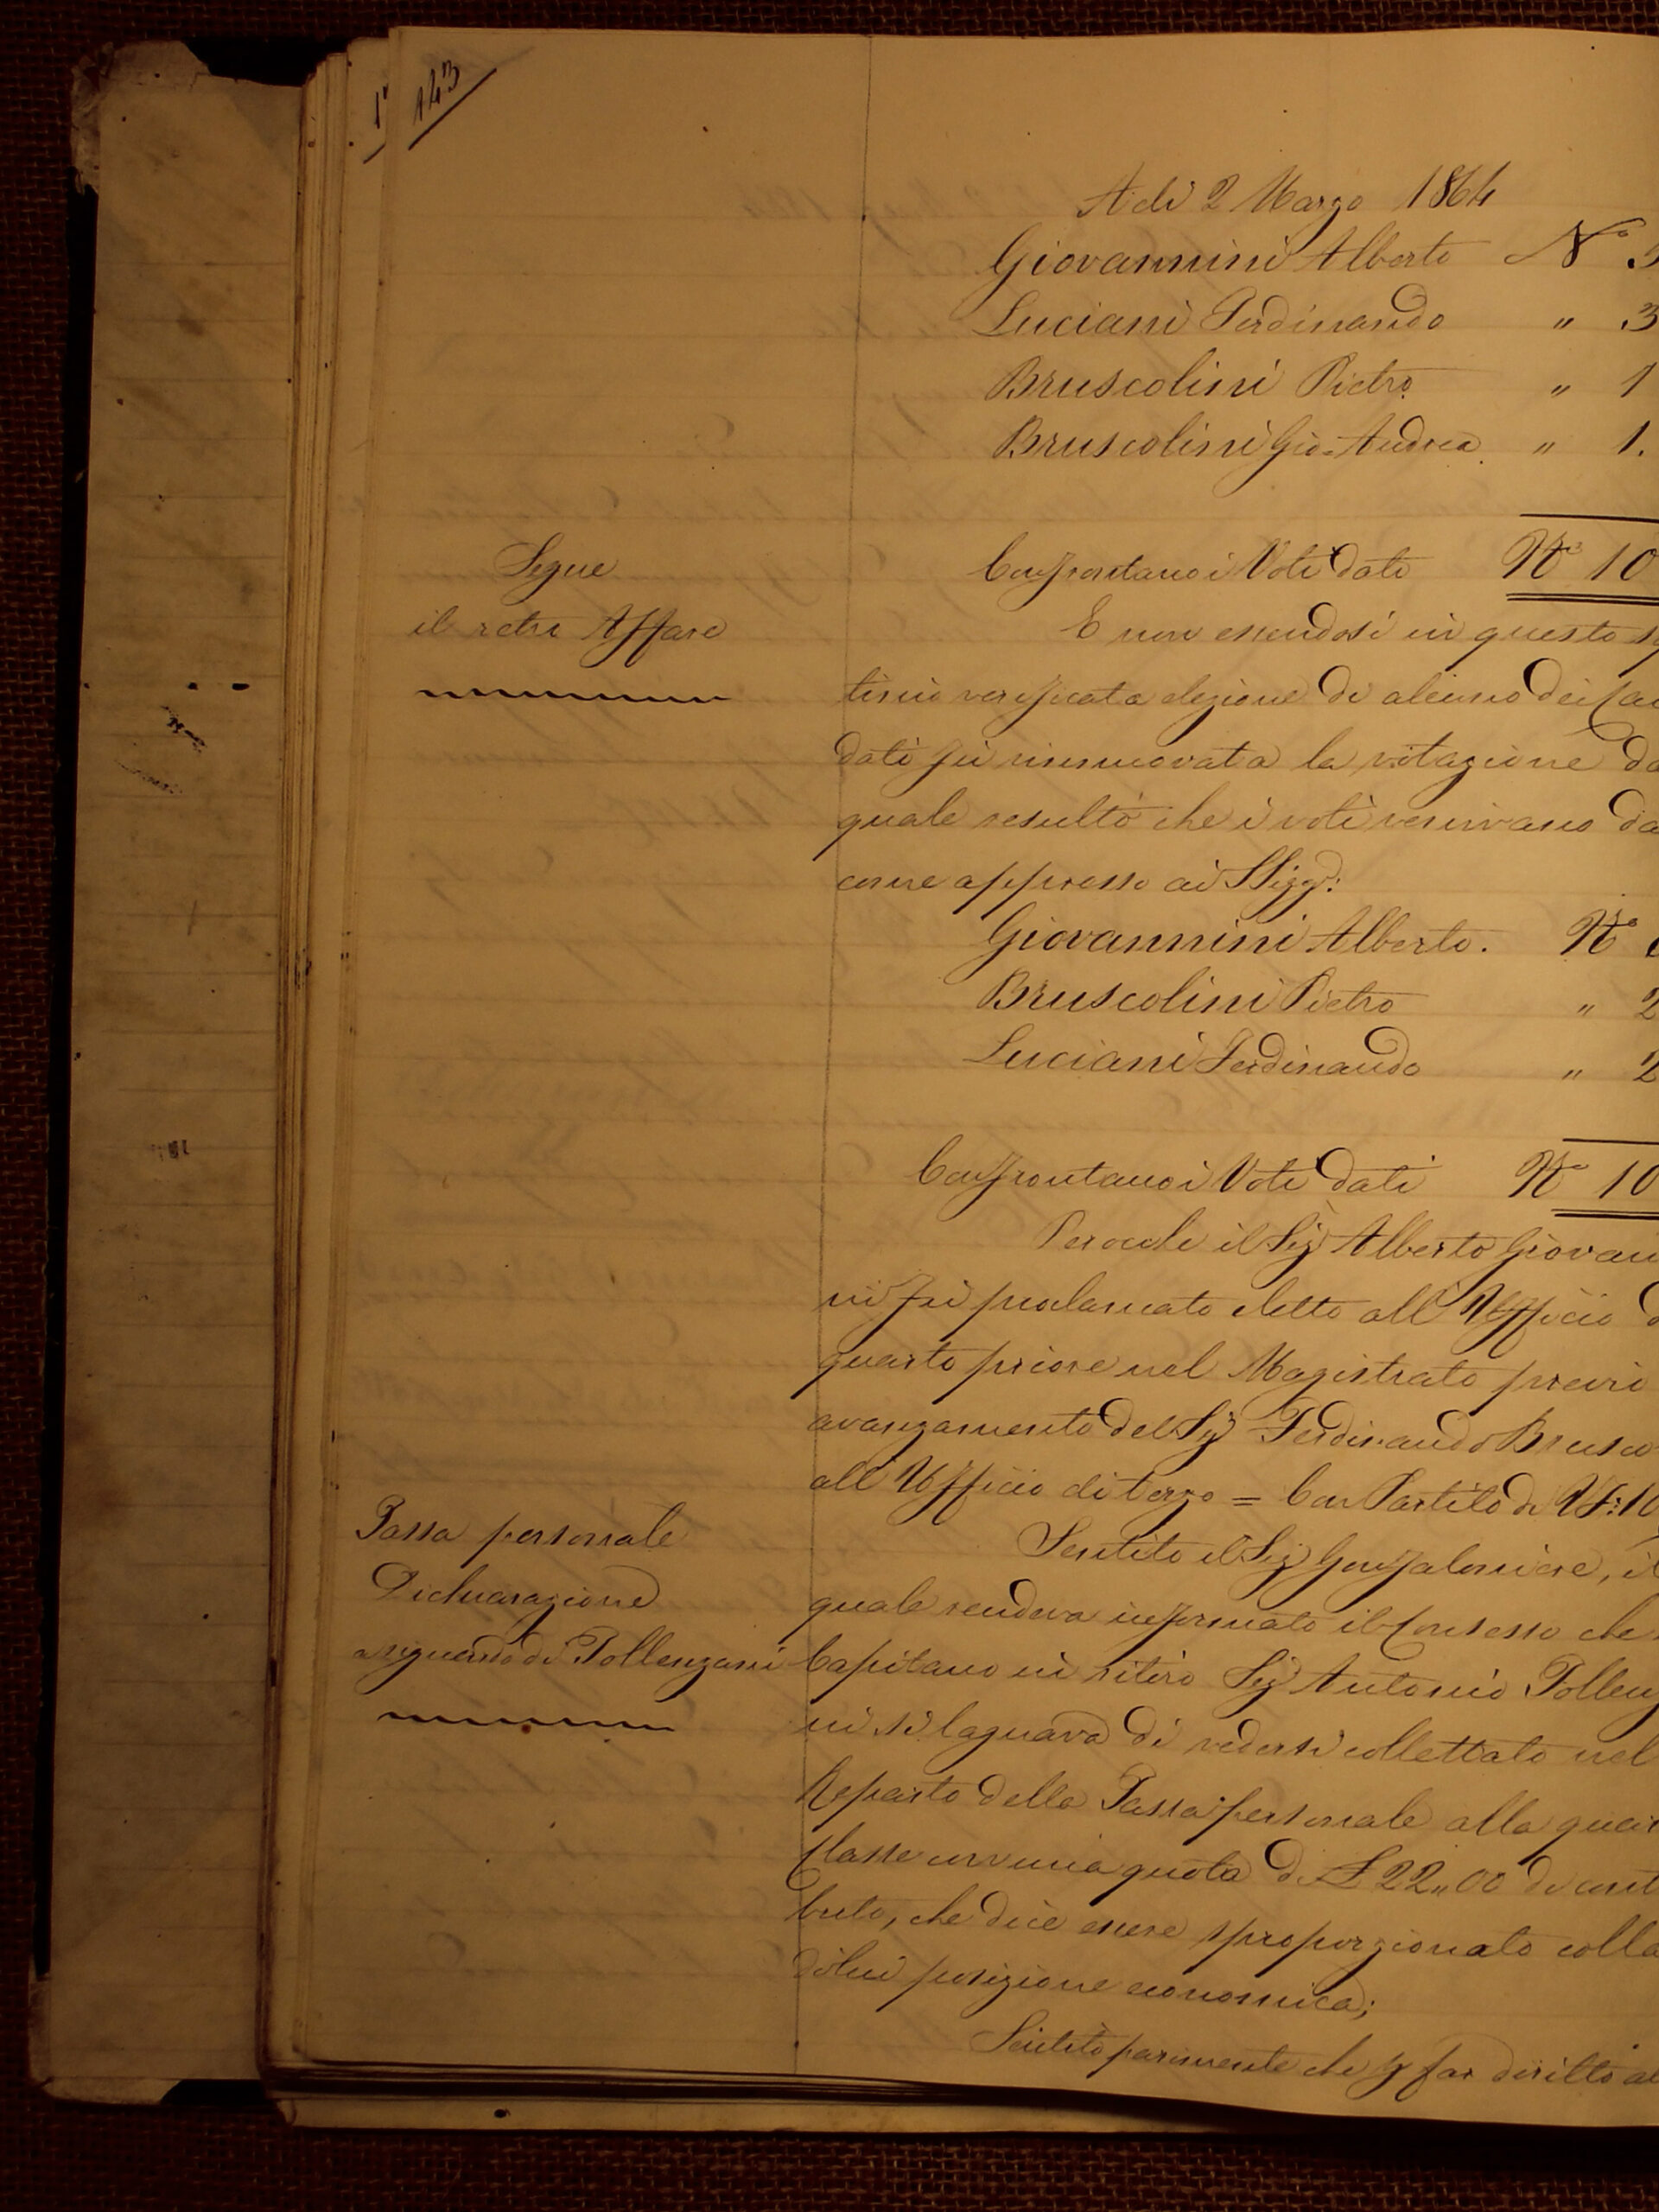 143
A di 2 Marzo 1864
Giovannini Alberto N° 5
Luciani Ferdinando " 3
Bruscolini Pietro " 1
Bruscolini Gio. Andrea " 1.
Segue
il retro Affare
Confrontano i Voti dati N° 10
E non essendosi in questo
tinio verificata elezione di alcuno dei Can
dati fù rinnuovata la votazione da
quale resultò che i voti venivano da
come appresso ai SSigg:
Giovannini Alberto. N°
Bruscolini Pietro " 2
Luciani Ferdinando " 2
Confrontano i Voti dati N° 10
Perocchè il Sig Alberto Giovan
ni fù proclamato eletto all'Uffficio d
quarto priore nel Magistrato previo
avanzamento del Sig Ferdinando Brusco
all'Uffficio di terzo = Con Partito di Vti: 10
Tassa personale
Dichiarazione
a riguardo di Pollenzani
Sentito il Sig Gonfaloniere, il
quale rendeva informato il Consesso che
Capitano in ritiro Sig Antonio Pollenz
ni si lagnava di vedersi collettato nel
Reparto della Tassa personale alla quar
Classe con una quota di £ 22,,00 di cont
buto, che dice essere sproporzionato colla
di lui posizione economica;
Sentito parimente che p far diritto al